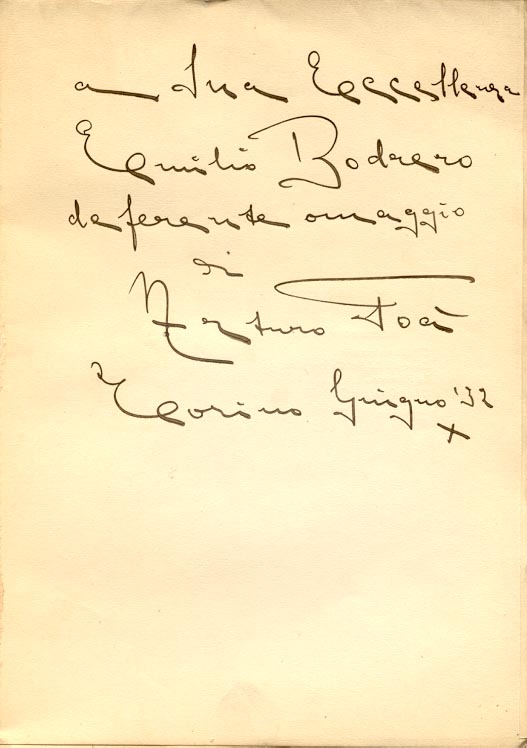 a Sua Eccellenza
Emilio Bodrero
deferente omaggio
di
Arturo Foà
Torino Giugno '32
X